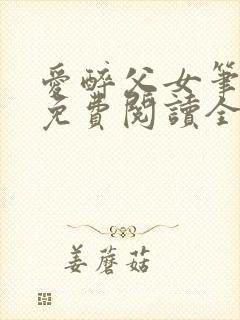 愛醉父女筆
免費閱讀全
姜蘑菇